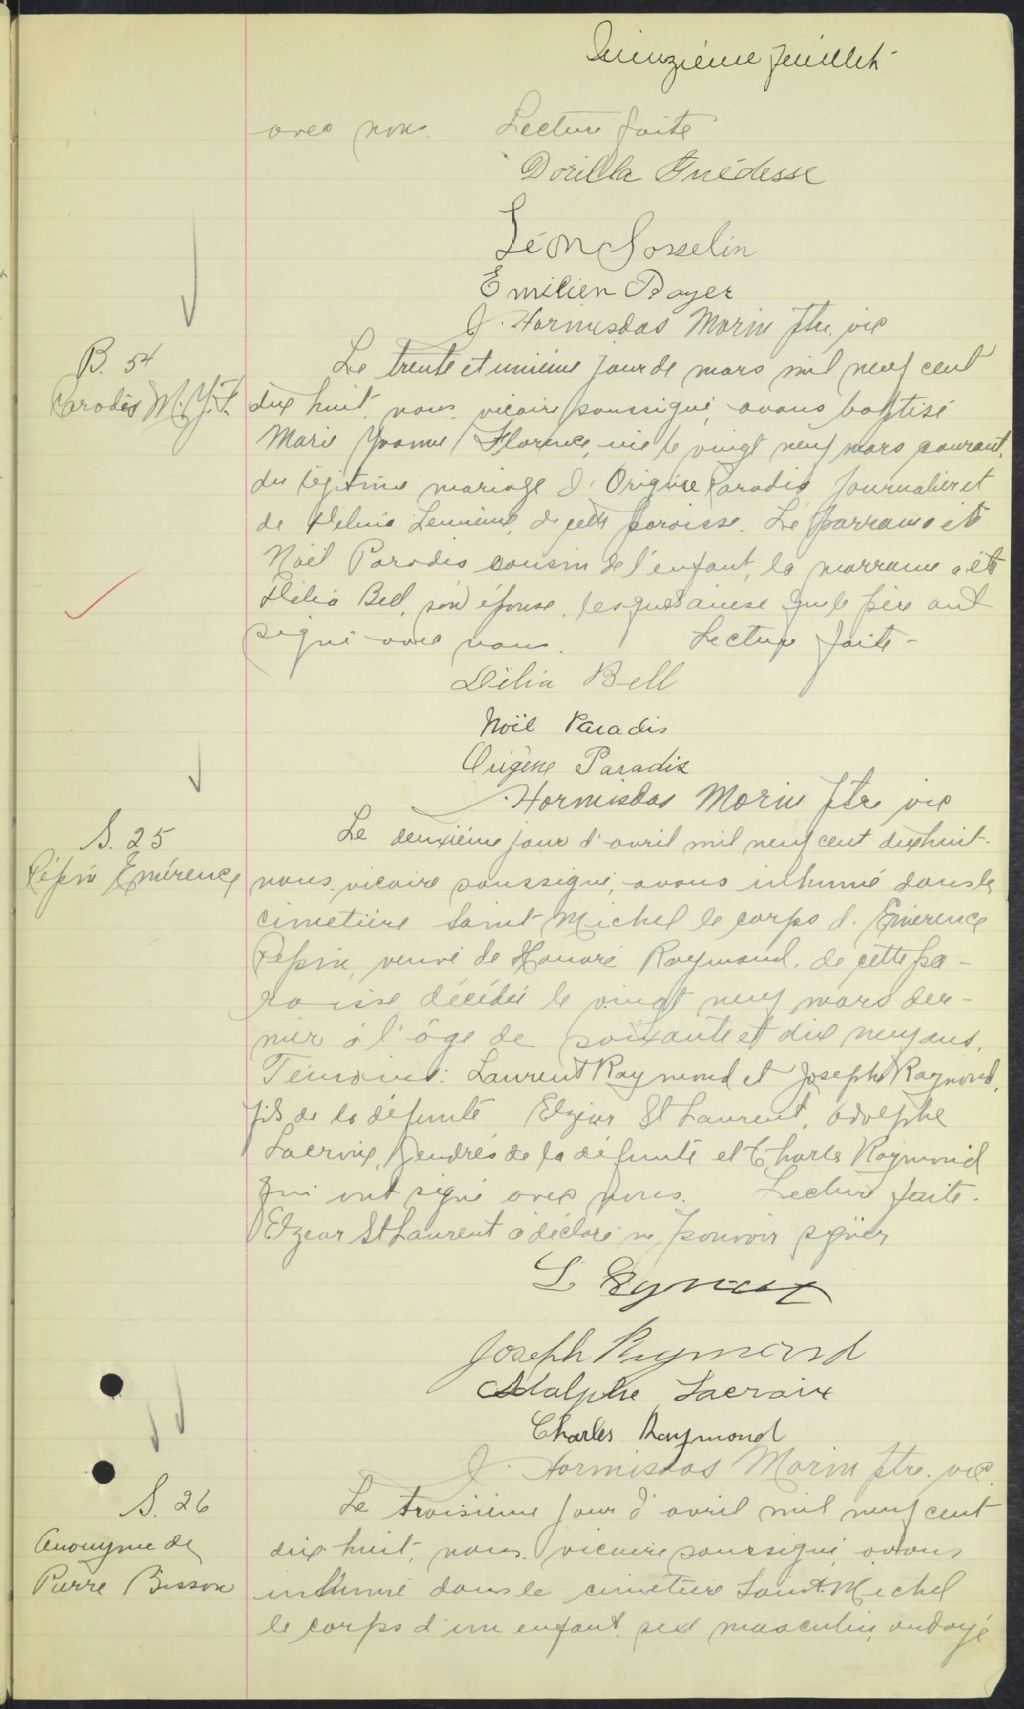 Quinzième feuillet
avec nous. Lecture faite
Dorilla
Léon Gosselin
Emilien Boyer
J. Hormisdas Morin ptre. vic
B. 54
Paradis M. Y. F.
Le trente et unième jour de mars mil neuf cent
dix huit, nous, vicaire soussigné, avons baptisé
Marie Yvonne Florence, née le vingt neuf mars courant,
du légitime mariage d'Origène Paradis journalier et
de Delvina Lemieux, de cette paroisse. Le parrain a été
Noël Paradis cousin de l'enfant, la marraine a été
Délia Bell, son épouse, lesquels ainsi que le père ont
signé avec nous. Lecture faite -
Délia Bell
Noël Paradis
Origène Paradis
J. Hormisdas Morin ptre vic
S. 25
Pépin Émérence
Le deuxième jour d'avril mil neuf cent dix huit.
nous, vicaire soussigné, avons inhumé dans le
cimetière Saint-Michel le corps d'Émérence
Pépin, veuve de Honoré Raymond. de cette pa-
roisse décédée le vingt neuf mars der-
nier à l'âge de soixante et dix neuf ans.
Témoins: Laurent Raymond et Joseph Raymond,
fils de la défunte Elzéar St Laurent, Adolphe
Lacroix, gendres de la défunte et Charles Raymond
qui ont signé avec nous. Lecture faite.
Elzéar St Laurent a déclaré ne pouvoir signer
L
Joseph Raymond
Adalphe Lacroix
Charles Raymond
J. Hormisdas Morin ptre. vic.
S. 26
Anonyme de
Pierre Bisson
Le troisième jour d'avril mil neuf cent
dix huit, nous, vicaire soussigné, avons
inhumé dans le cimetière Saint-Michel
le corps d'un enfant, sexe masculin, ondoyé